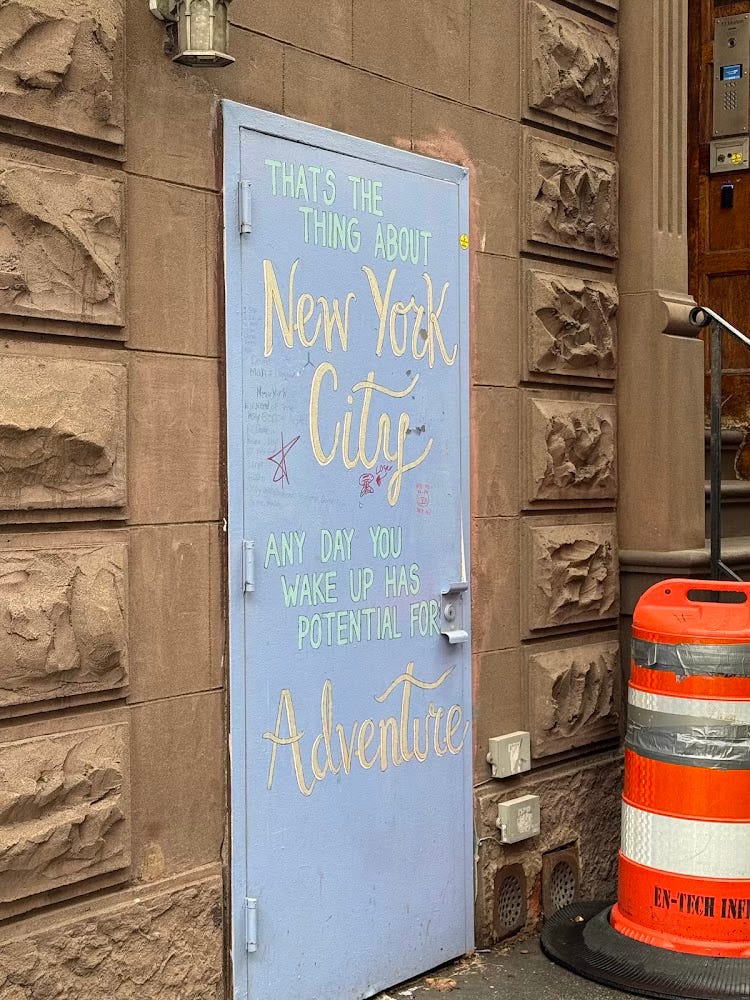 THAT'S THE
THING ABOUT
New York
City
ANY DAY YOU
WAKE UP HAS
POTENTIAL FOR
Adventure
EN-TECH